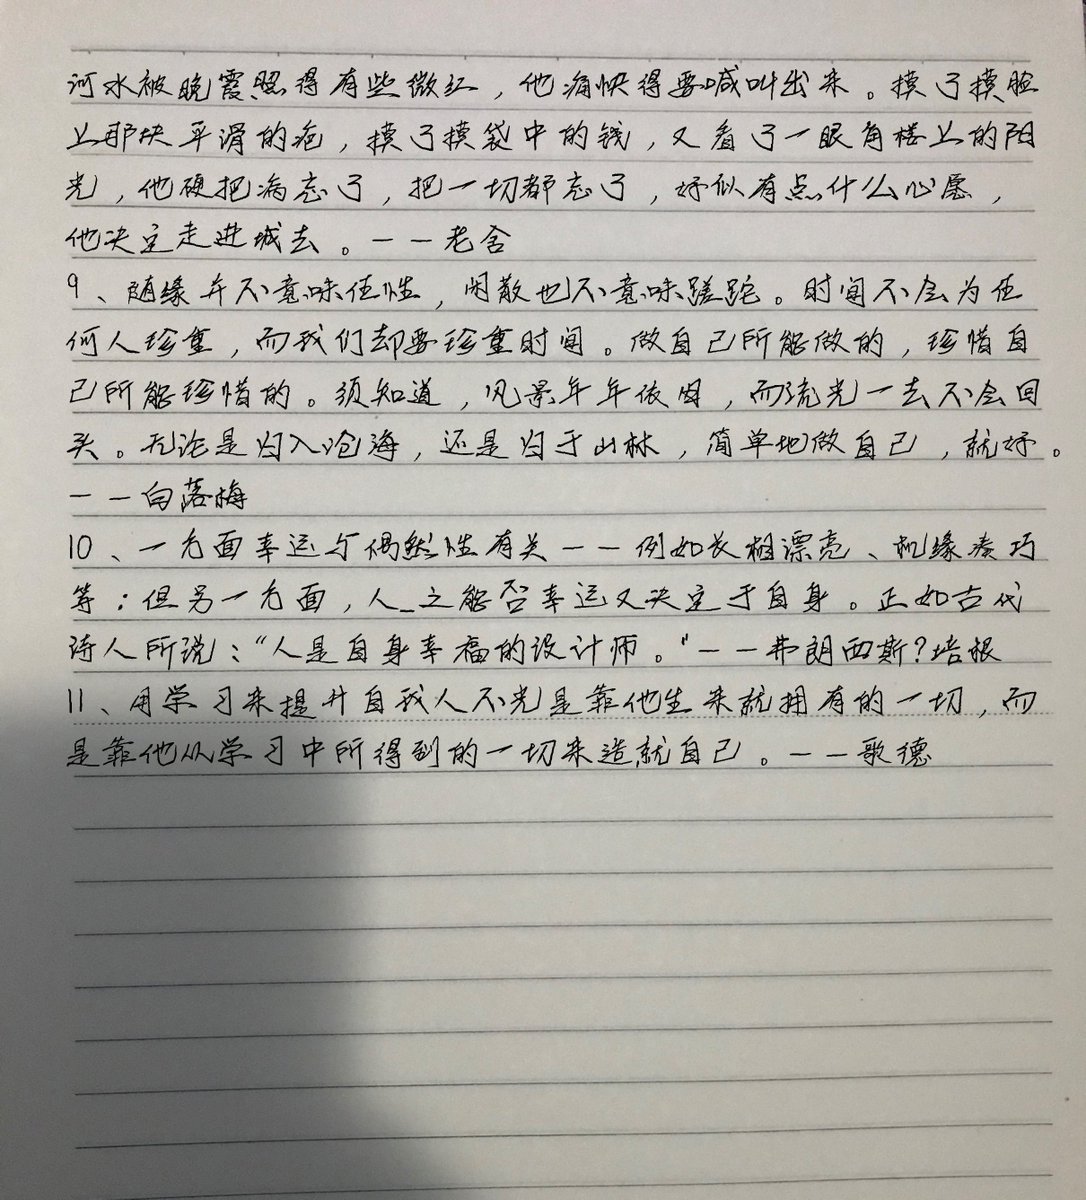 河水被晚霞照得有些微红，他痛快得要喊叫出来。摸了摸脸
上那块平滑的疤，摸了摸袋中的钱，又看了一眼角楼上的阳
光，他硬把病忘了，把一切都忘了，好似有点什么心愿，
他决定走进城去。——老舍
9、随缘并不意味任性，闲散也不意味蹉跎。时间不会为任
何人珍重，而我们却要珍重时间。做自己所能做的，珍惜自
己所能珍惜的。须知道，风景年年依旧，而流光一去不会回
头。无论是归入沧海，还是归于山林，简单地做自己，就好。
——白落梅
10、一方面幸运与偶然性有关——例如长相漂亮、机缘凑巧
等；但另一方面，人_之能否幸运又决定于自身。正如古代
诗人所说：“人是自身幸福的设计师。”——弗朗西斯?培根
11、用学习来提升自我人不光是靠他生来就拥有的一切，而
是靠他从学习中所得到的一切来造就自己。——歌德